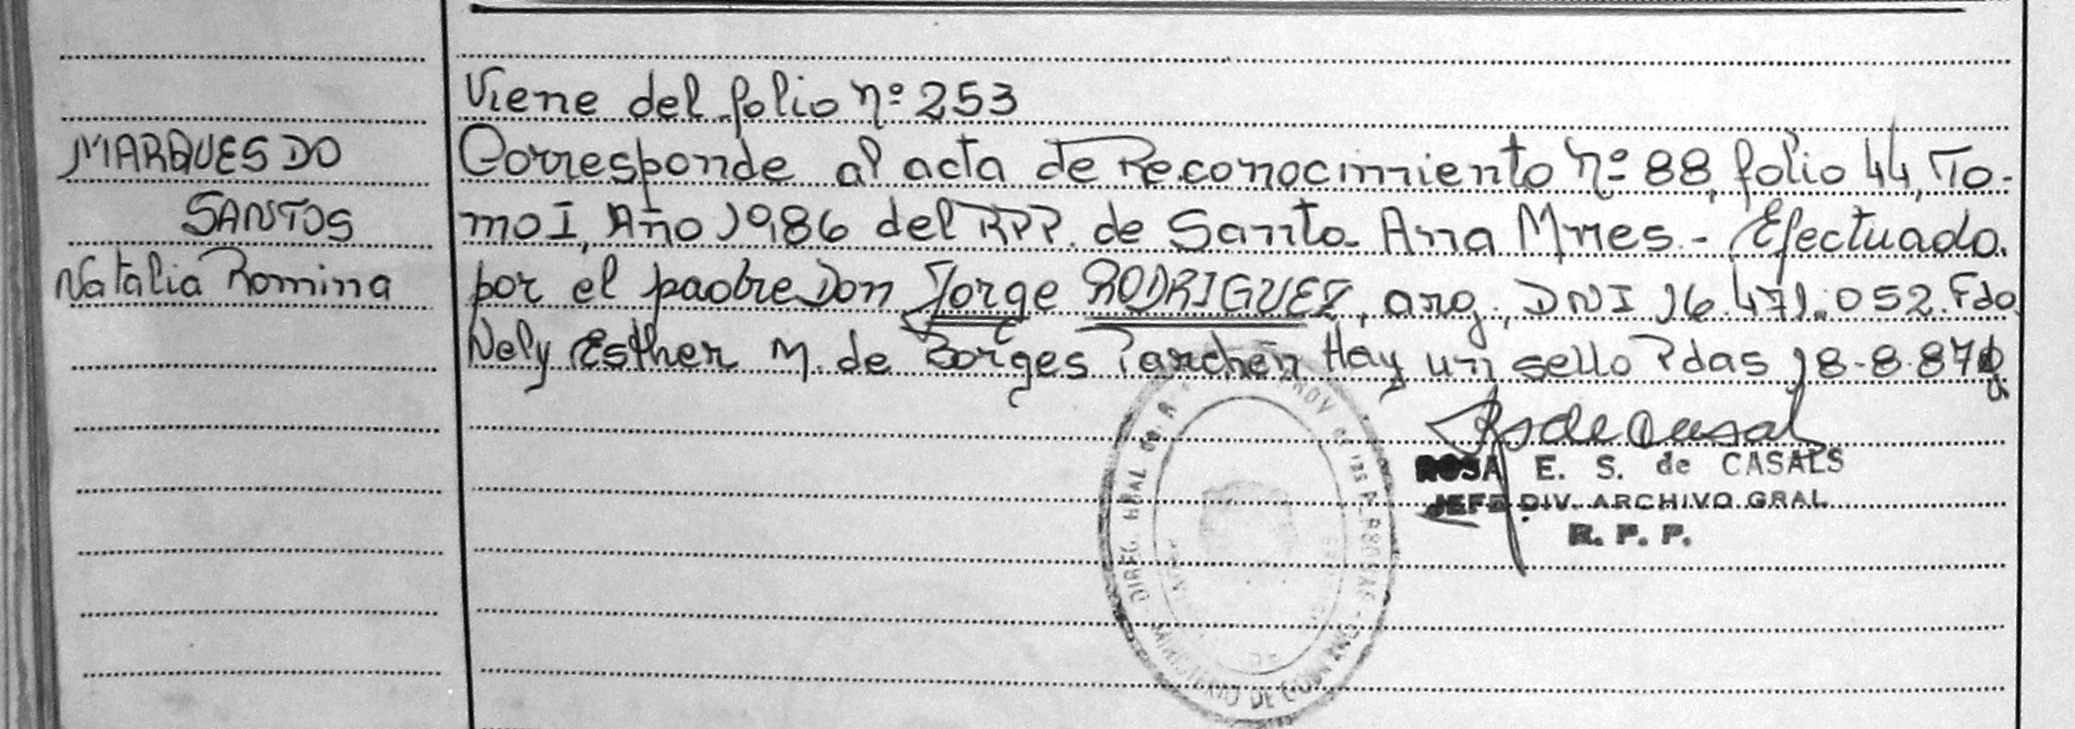 Viene del folio nº 253
MARQUES DO
SANTOS
Natalia Romina
Corresponde al acta de Reconocimiento nº 88, folio 44, To-
mo I, Año 1986 del RPP. de Santa Ana Mnes.- Efectuado
por el padre Don Jorge RODRIGUEZ, arg., DNI 16.471.052. Fdo
Nely Esther M. de Borges Parchen Hay un sello Pdas 18-8-87
ROSA E. S. de CASALS
JEFE DIV. ARCHIVO GRAL
R. P. P.
DIREG. GRAL DE R. PROV. DE LAS PERSONAS
MINISTERIO DE GOBIERNO